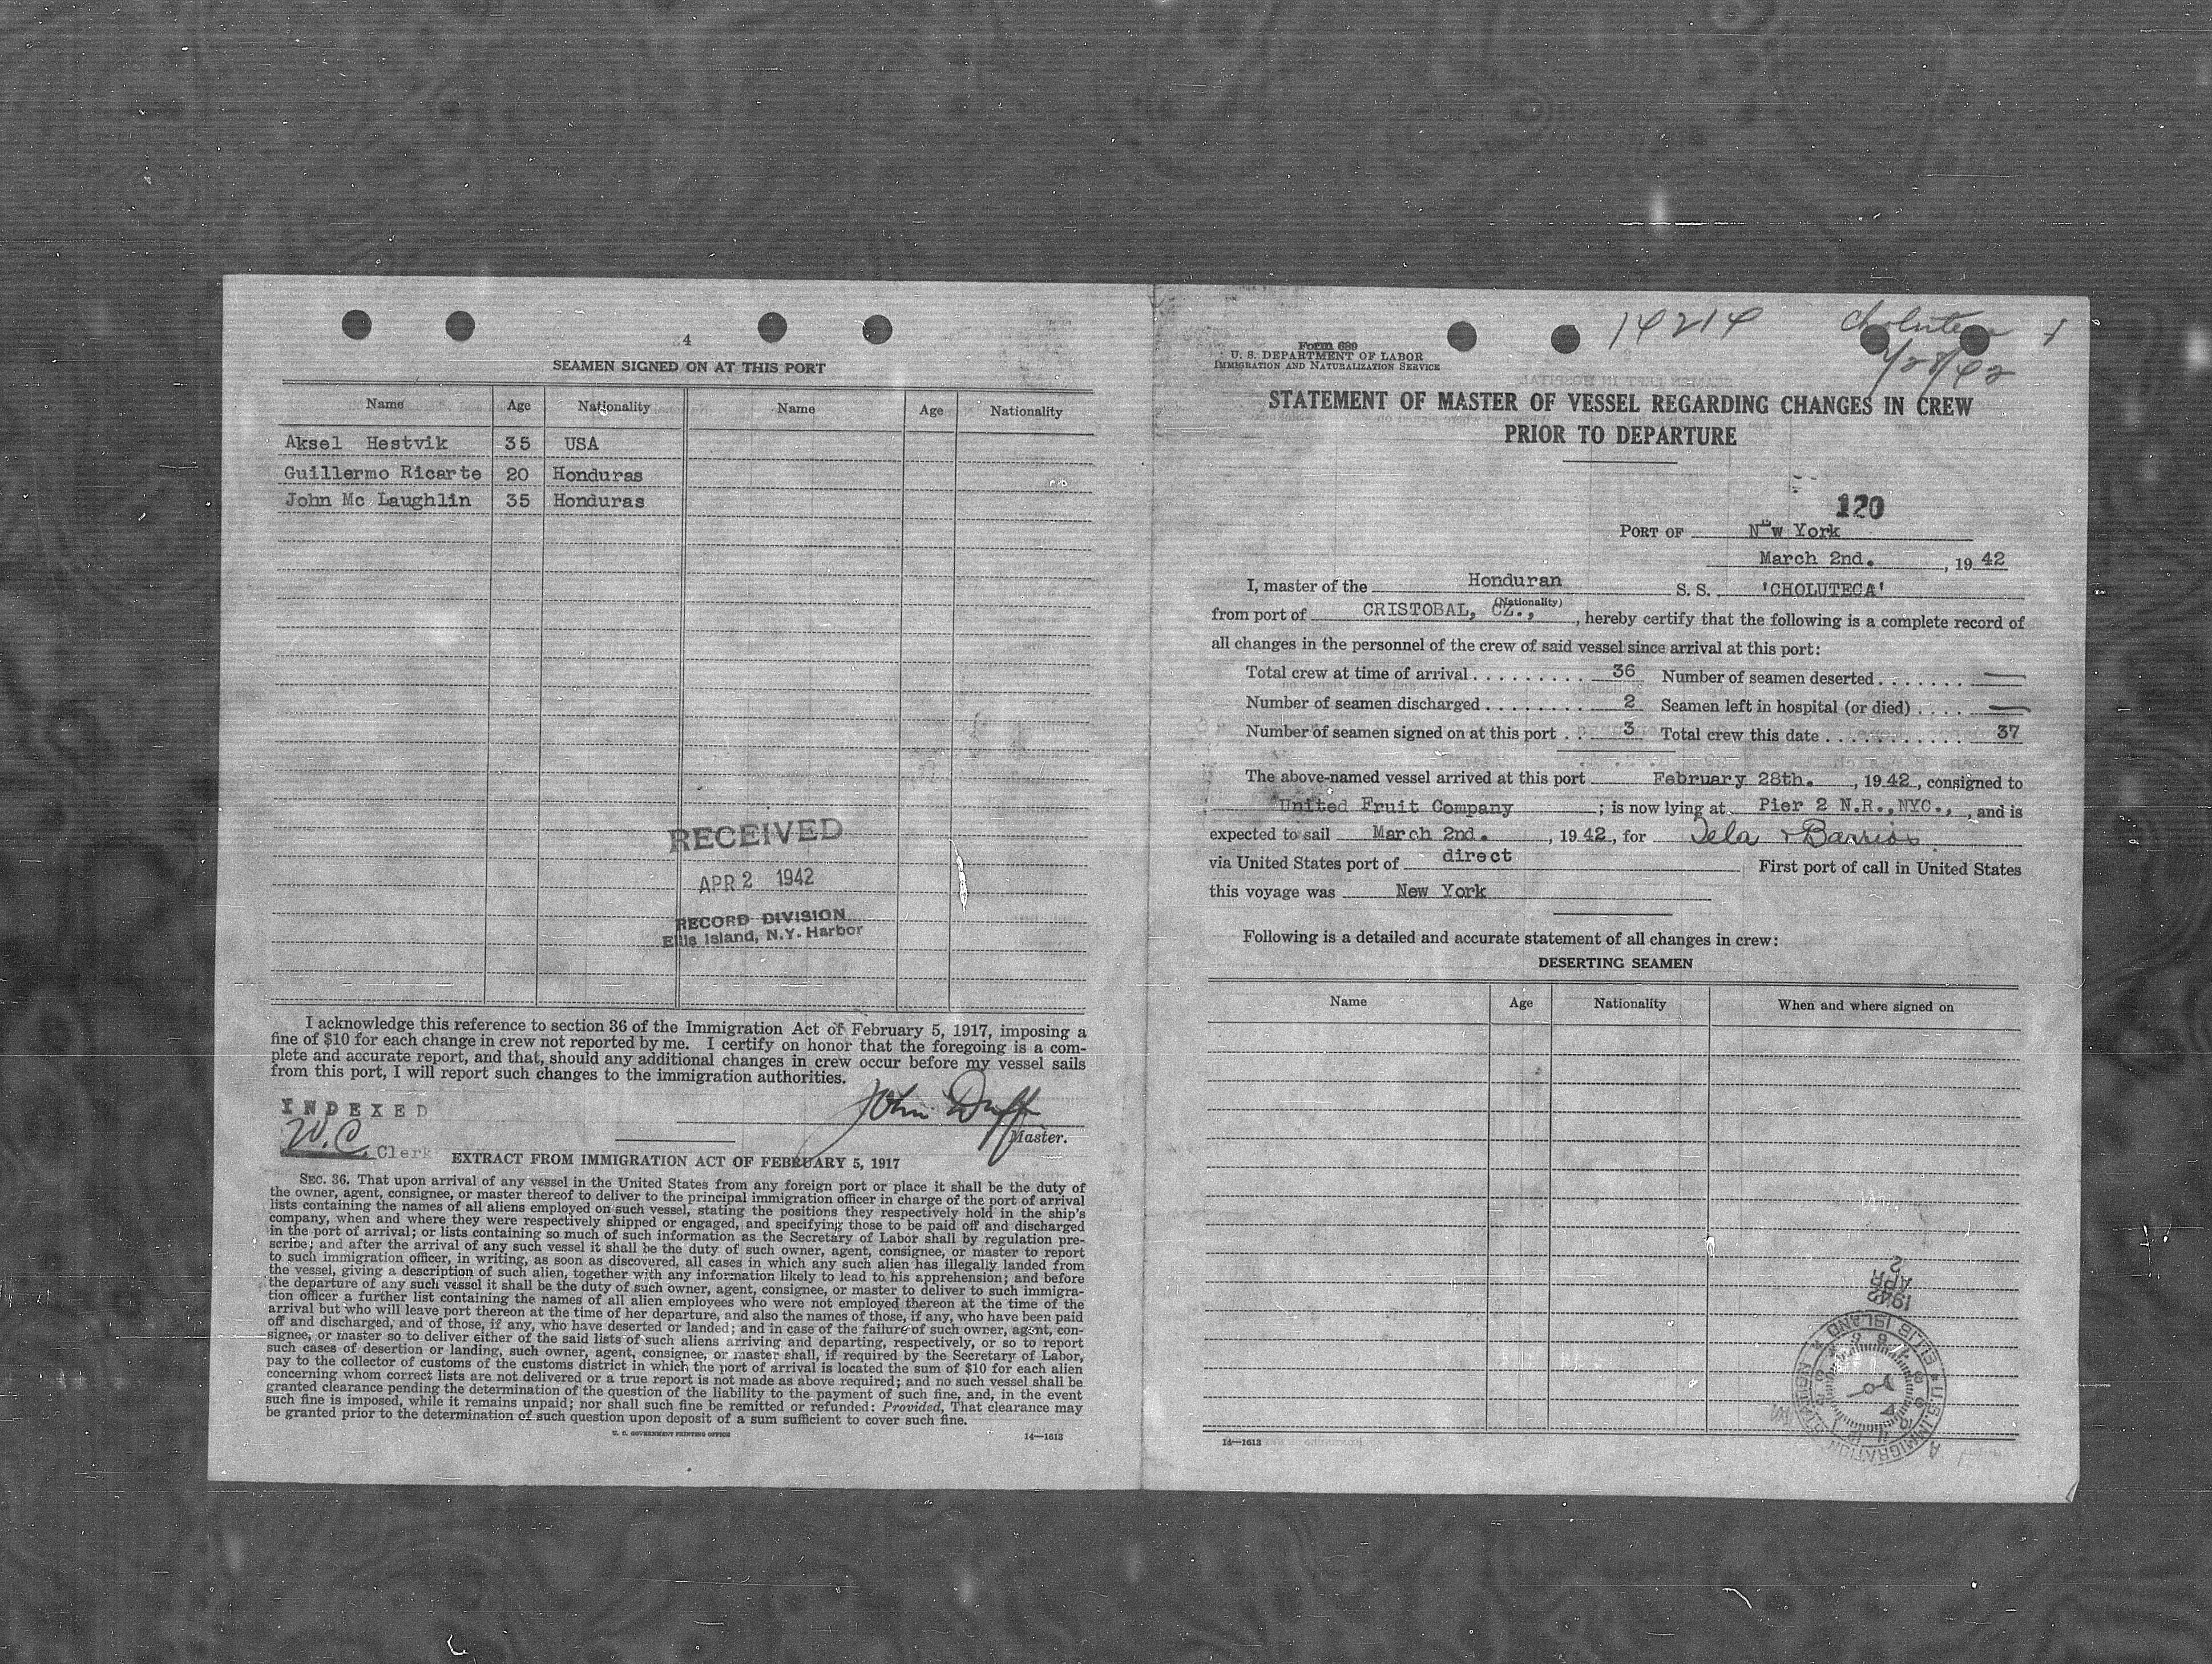 4
SEAMEN SIGNED ON AT THIS PORT
Name Age Nationality Name Age Nationality
Aksel Hestvik 35 USA
Guillermo Ricarte 20 Honduras
John Mc Laughlin 35 Honduras
RECEIVED
APR 2 1942
RECORD DIVISION
Ellis Island, N.Y. Harbor
I acknowledge this reference to section 36 of the Immigration Act of February 5, 1917, imposing a
fine of $10 for each change in crew not reported by me. I certify on honor that the foregoing is a com-
plete and accurate report, and that, should any additional changes in crew occur before my vessel sails
from this port, I will report such changes to the immigration authorities.
INDEXED
W.C. Clerk
John Duff
Master.
EXTRACT FROM IMMIGRATION ACT OF FEBRUARY 5, 1917
SEC. 36. That upon arrival of any vessel in the United States from any foreign port or place it shall be the duty of
the owner, agent, consignee, or master thereof to deliver to the principal immigration officer in charge of the port of arrival
lists containing the names of all aliens employed on such vessel, stating the positions they respectively hold in the ship's
company, when and where they were respectively shipped or engaged, and specifying those to be paid off and discharged
in the port of arrival; or lists containing so much of such information as the Secretary of Labor shall by regulation pre-
scribe; and after the arrival of any such vessel it shall be the duty of such owner, agent, consignee, or master to report
to such immigration officer, in writing, as soon as discovered, all cases in which any such alien has illegally landed from
the vessel, giving a description of such alien, together with any information likely to lead to his apprehension; and before
the departure of any such vessel it shall be the duty of such owner, agent, consignee, or master to deliver to such immigra-
tion officer a further list containing the names of all alien employees who were not employed thereon at the time of the
arrival but who will leave port thereon at the time of her departure, and also the names of those, if any, who have been paid
off and discharged, and of those, if any, who have deserted or landed; and in case of the failure of such owner, agent, con-
signee, or master so to deliver either of the said lists of such aliens arriving and departing, respectively, or so to report
such cases of desertion or landing, such owner, agent, consignee, or master shall, if required by the Secretary of Labor,
pay to the collector of customs of the customs district in which the port of arrival is located the sum of $10 for each alien
concerning whom correct lists are not delivered or a true report is not made as above required; and no such vessel shall be
granted clearance pending the determination of the question of the liability to the payment of such fine, and, in the event
such fine is imposed, while it remains unpaid; nor shall such fine be remitted or refunded: Provided, That clearance may
be granted prior to the determination of such question upon deposit of a sum sufficient to cover such fine.
U. S. GOVERNMENT PRINTING OFFICE 14—1613
14214 Choluteca
Form 689
U. S. DEPARTMENT OF LABOR
IMMIGRATION AND NATURALIZATION SERVICE
STATEMENT OF MASTER OF VESSEL REGARDING CHANGES IN CREW
PRIOR TO DEPARTURE
120
PORT OF New York
March 2nd. , 19 42
I, master of the Honduran S. S. 'CHOLUTECA'
(Nationality)
from port of CRISTOBAL, CZ., , hereby certify that the following is a complete record of
all changes in the personnel of the crew of said vessel since arrival at this port:
Total crew at time of arrival . . . . . . . . . 36 Number of seamen deserted . . . . . . . —
Number of seamen discharged . . . . . . . 2 Seamen left in hospital (or died) . . . . —
Number of seamen signed on at this port . . 3 Total crew this date . . . . . . . . . . . 37
The above-named vessel arrived at this port February 28th. , 19 42, consigned to
United Fruit Company ; is now lying at Pier 2 N.R., NYC., , and is
expected to sail March 2nd. , 19 42, for Tela & Barrios.
via United States port of direct First port of call in United States
this voyage was New York
Following is a detailed and accurate statement of all changes in crew:
DESERTING SEAMEN
Name Age Nationality When and where signed on
1942
APR
2
U.S. IMMIGRATION STATION ELLIS ISLAND
14—1613